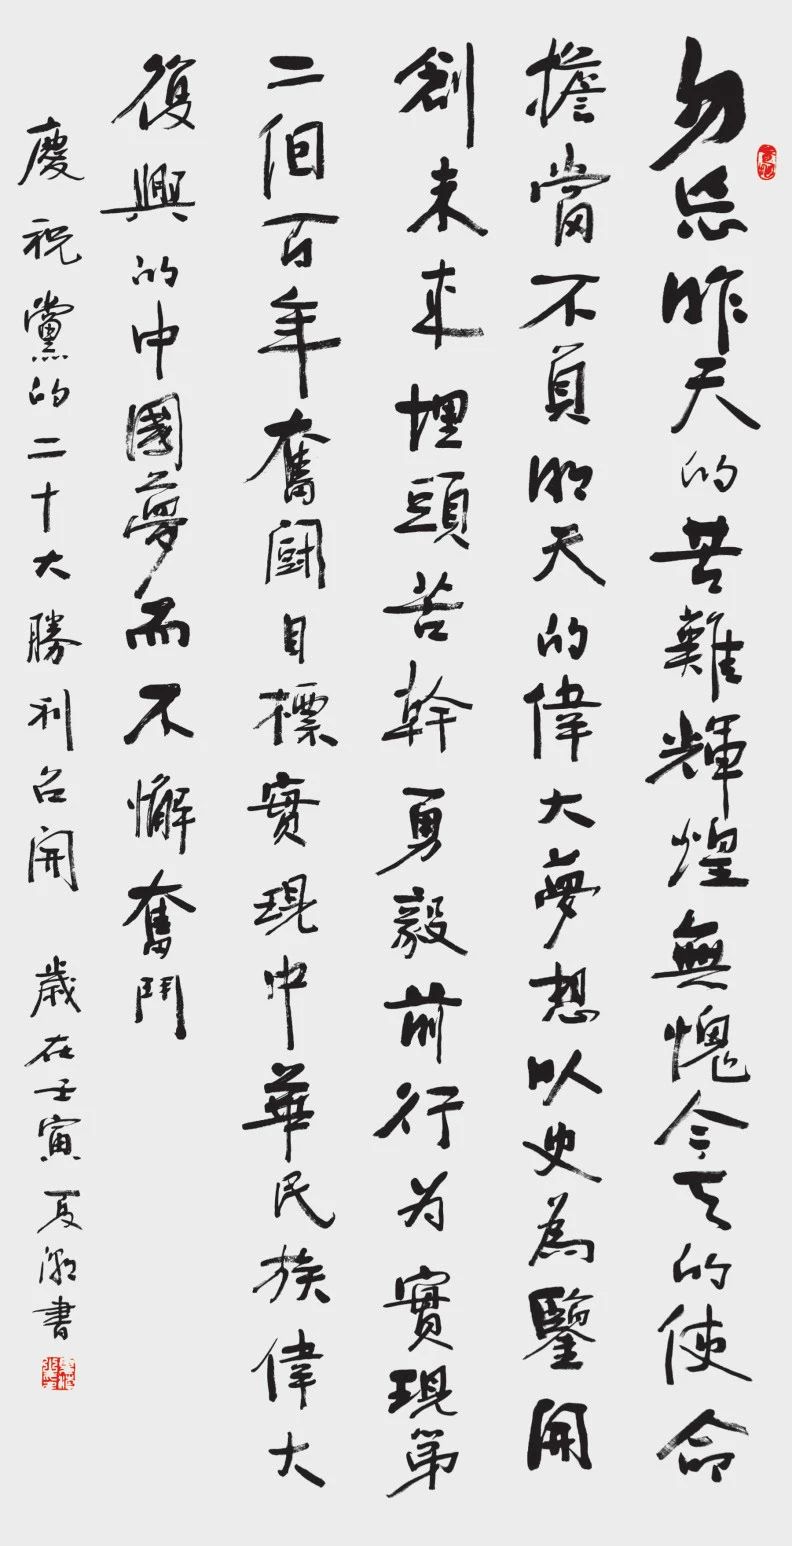 勿忘昨天的苦難輝煌無愧今天的使命
擔當不負明天的偉大夢想以史為鑒開
創未來埋頭苦幹勇毅前行为實現第
二個百年奮鬭目標實現中華民族偉大
復興的中國夢而不懈奮鬥
慶祝黨的二十大勝利召開 歲在壬寅夏潮書